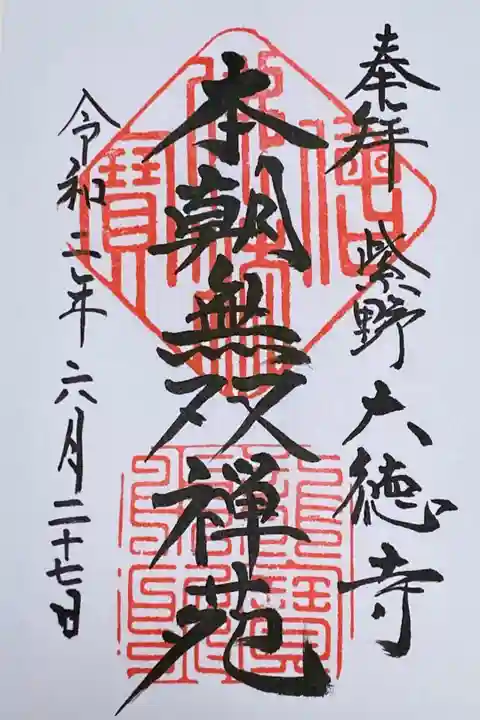 奉拝 紫野 大徳寺
本朝無双禅苑
令和二年六月二十七日